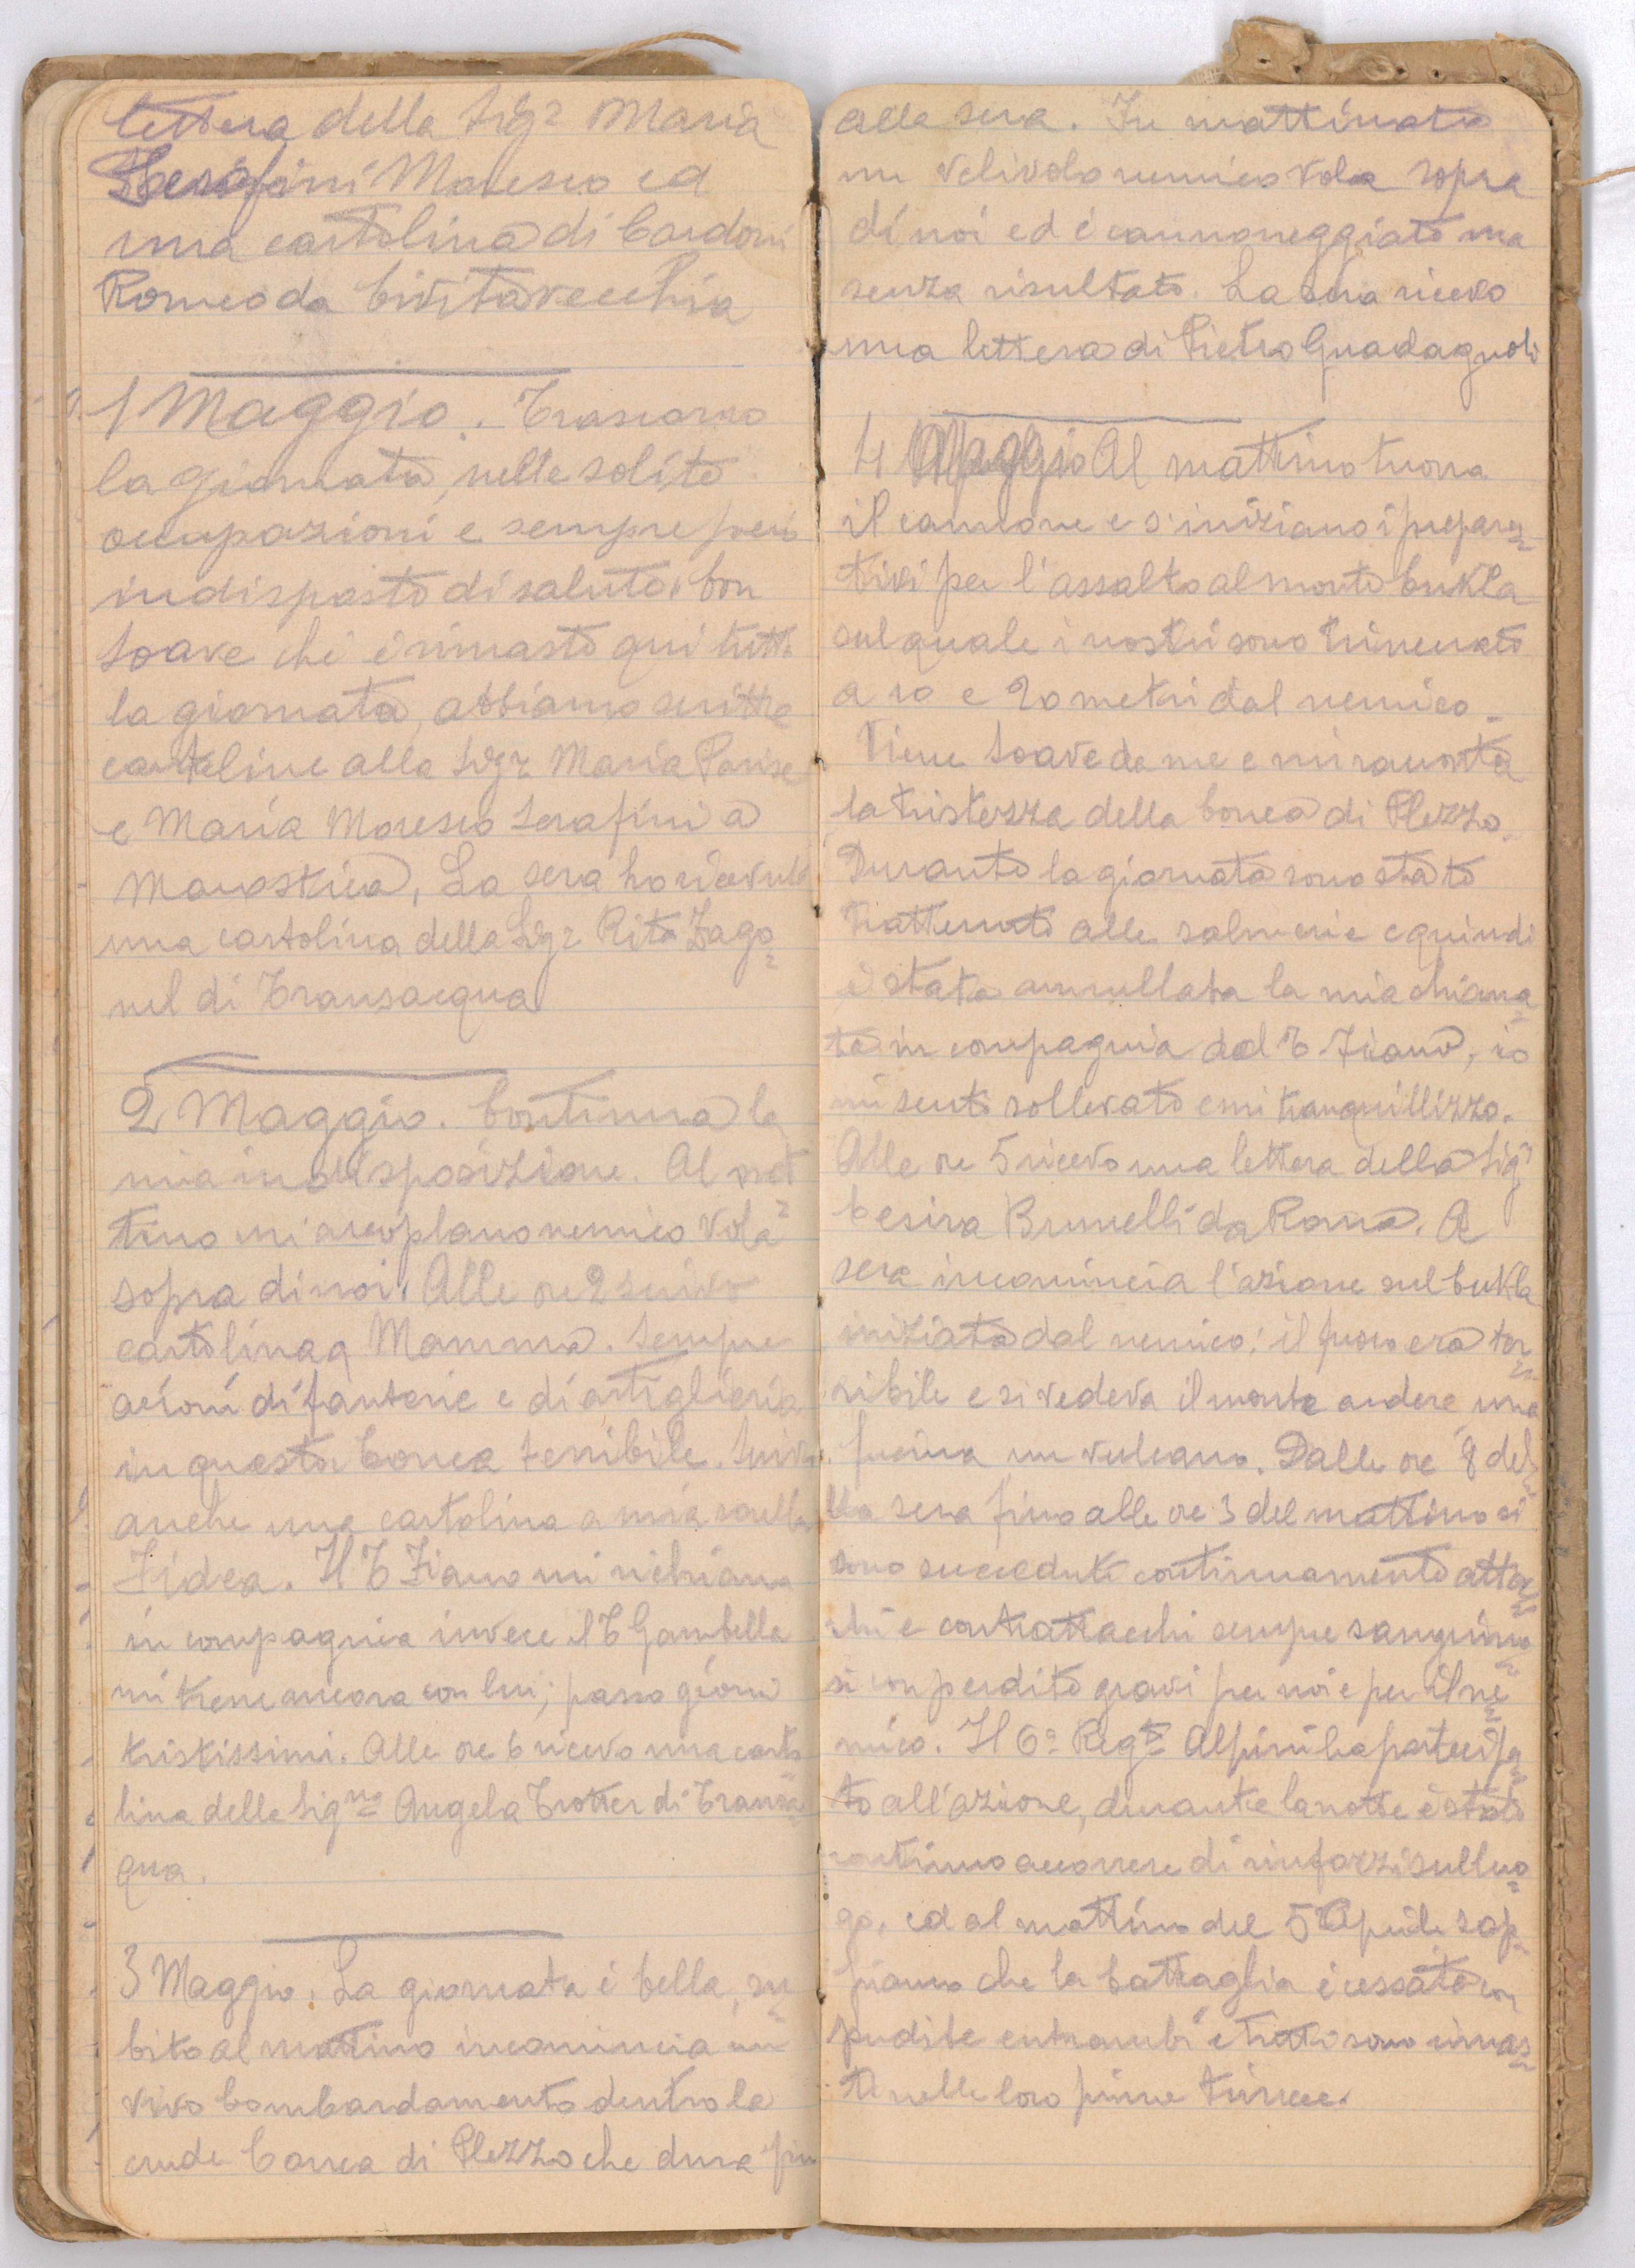 lettera della Sigr Maria
Serafini Moresco ed
una cartolina di Cardoni
Romeo da Civitavecchia
1 Maggio. Trascorro
la giornata, nelle solite
occupazioni e sempre
indisposto di salute. Con
Soave che è rimasto qui tutta
la giornata, abbiamo scritto
cartoline alla Sigr Maria Parise
e Maria Moresco Serafini a
Marostica, La sera ho ricevuto
una cartolina della Sigr Rita Zago=
nel di Transacqua
2 Maggio. Continua la
mia indisposizione. Al mat=
tino un areoplano nemico vola
sopra di noi. Alle ore 2 scrivo
cartolina a Mamma. Sempre
azioni di fanterie e di artiglieria
in questa Conca terribile. Scrivo
anche una cartolina a mia sorella
Fidea. Il T Fiano mi richiama
in compagnia invece il T Gambella
mi tiene ancora con lui; passo giorni
tristissimi. Alle ore 6 ricevo una carto
lina della Signa Angela Trotter di Transa=
qua.
3 Maggio. La giornata è bella, su=
bito al mattino incomincia un
vivo bombardamento dentro la
crude Conca di Plezzo che dura fin
alla sera. In mattinata
un velivolo nemico vola sopra
di noi ed è cannoneggiato ma
senza risultato. La sera ricevo
una lettera di Pietro Guadagnoli
4 Maggio Al mattino tuona
il cannone e s'iniziano i prepara=
tivi per l'assalto al monte Cukla
sul quale i nostri sono trincerati
a 10 e 20 metri dal nemico.
Viene Soave da me e mi racconta
la tristezza della Conca di Plezzo.
Durante la giornata sono stato
trattenuto alle salmerie e quindi
è stata annullata la mia chiama=
ta in compagnia dal T. Fiano, io
mi sento sollevato e mi tranquillizzo.
Alle ore 5 ricevo una lettera della Sigr
Cesira Brunelli da Roma. A
sera incomincia l'azione sul Cukla
iniziata dal nemico: il fuoco era ter=
ribile e si vedeva il monte ardere, una
fucina un vulcano. Dalle ore 8 del=
lla sera fino alle ore 3 del mattino si
sono succeduti continuamente attac=
chi e contrattacchi sempre sanguino=
si con perdite gravi per noi e per il ne=
mico. Il 6° Regto Alpini ha partecipa=
to all'azione, durante la notte è stato
continuo accorrere di rinforzi sul luo=
go, ed al mattino del 5 Aprile sap=
piamo che la battaglia è cessata con
perdite entrambi e tutti sono rimas=
ti nelle loro prime trincee.